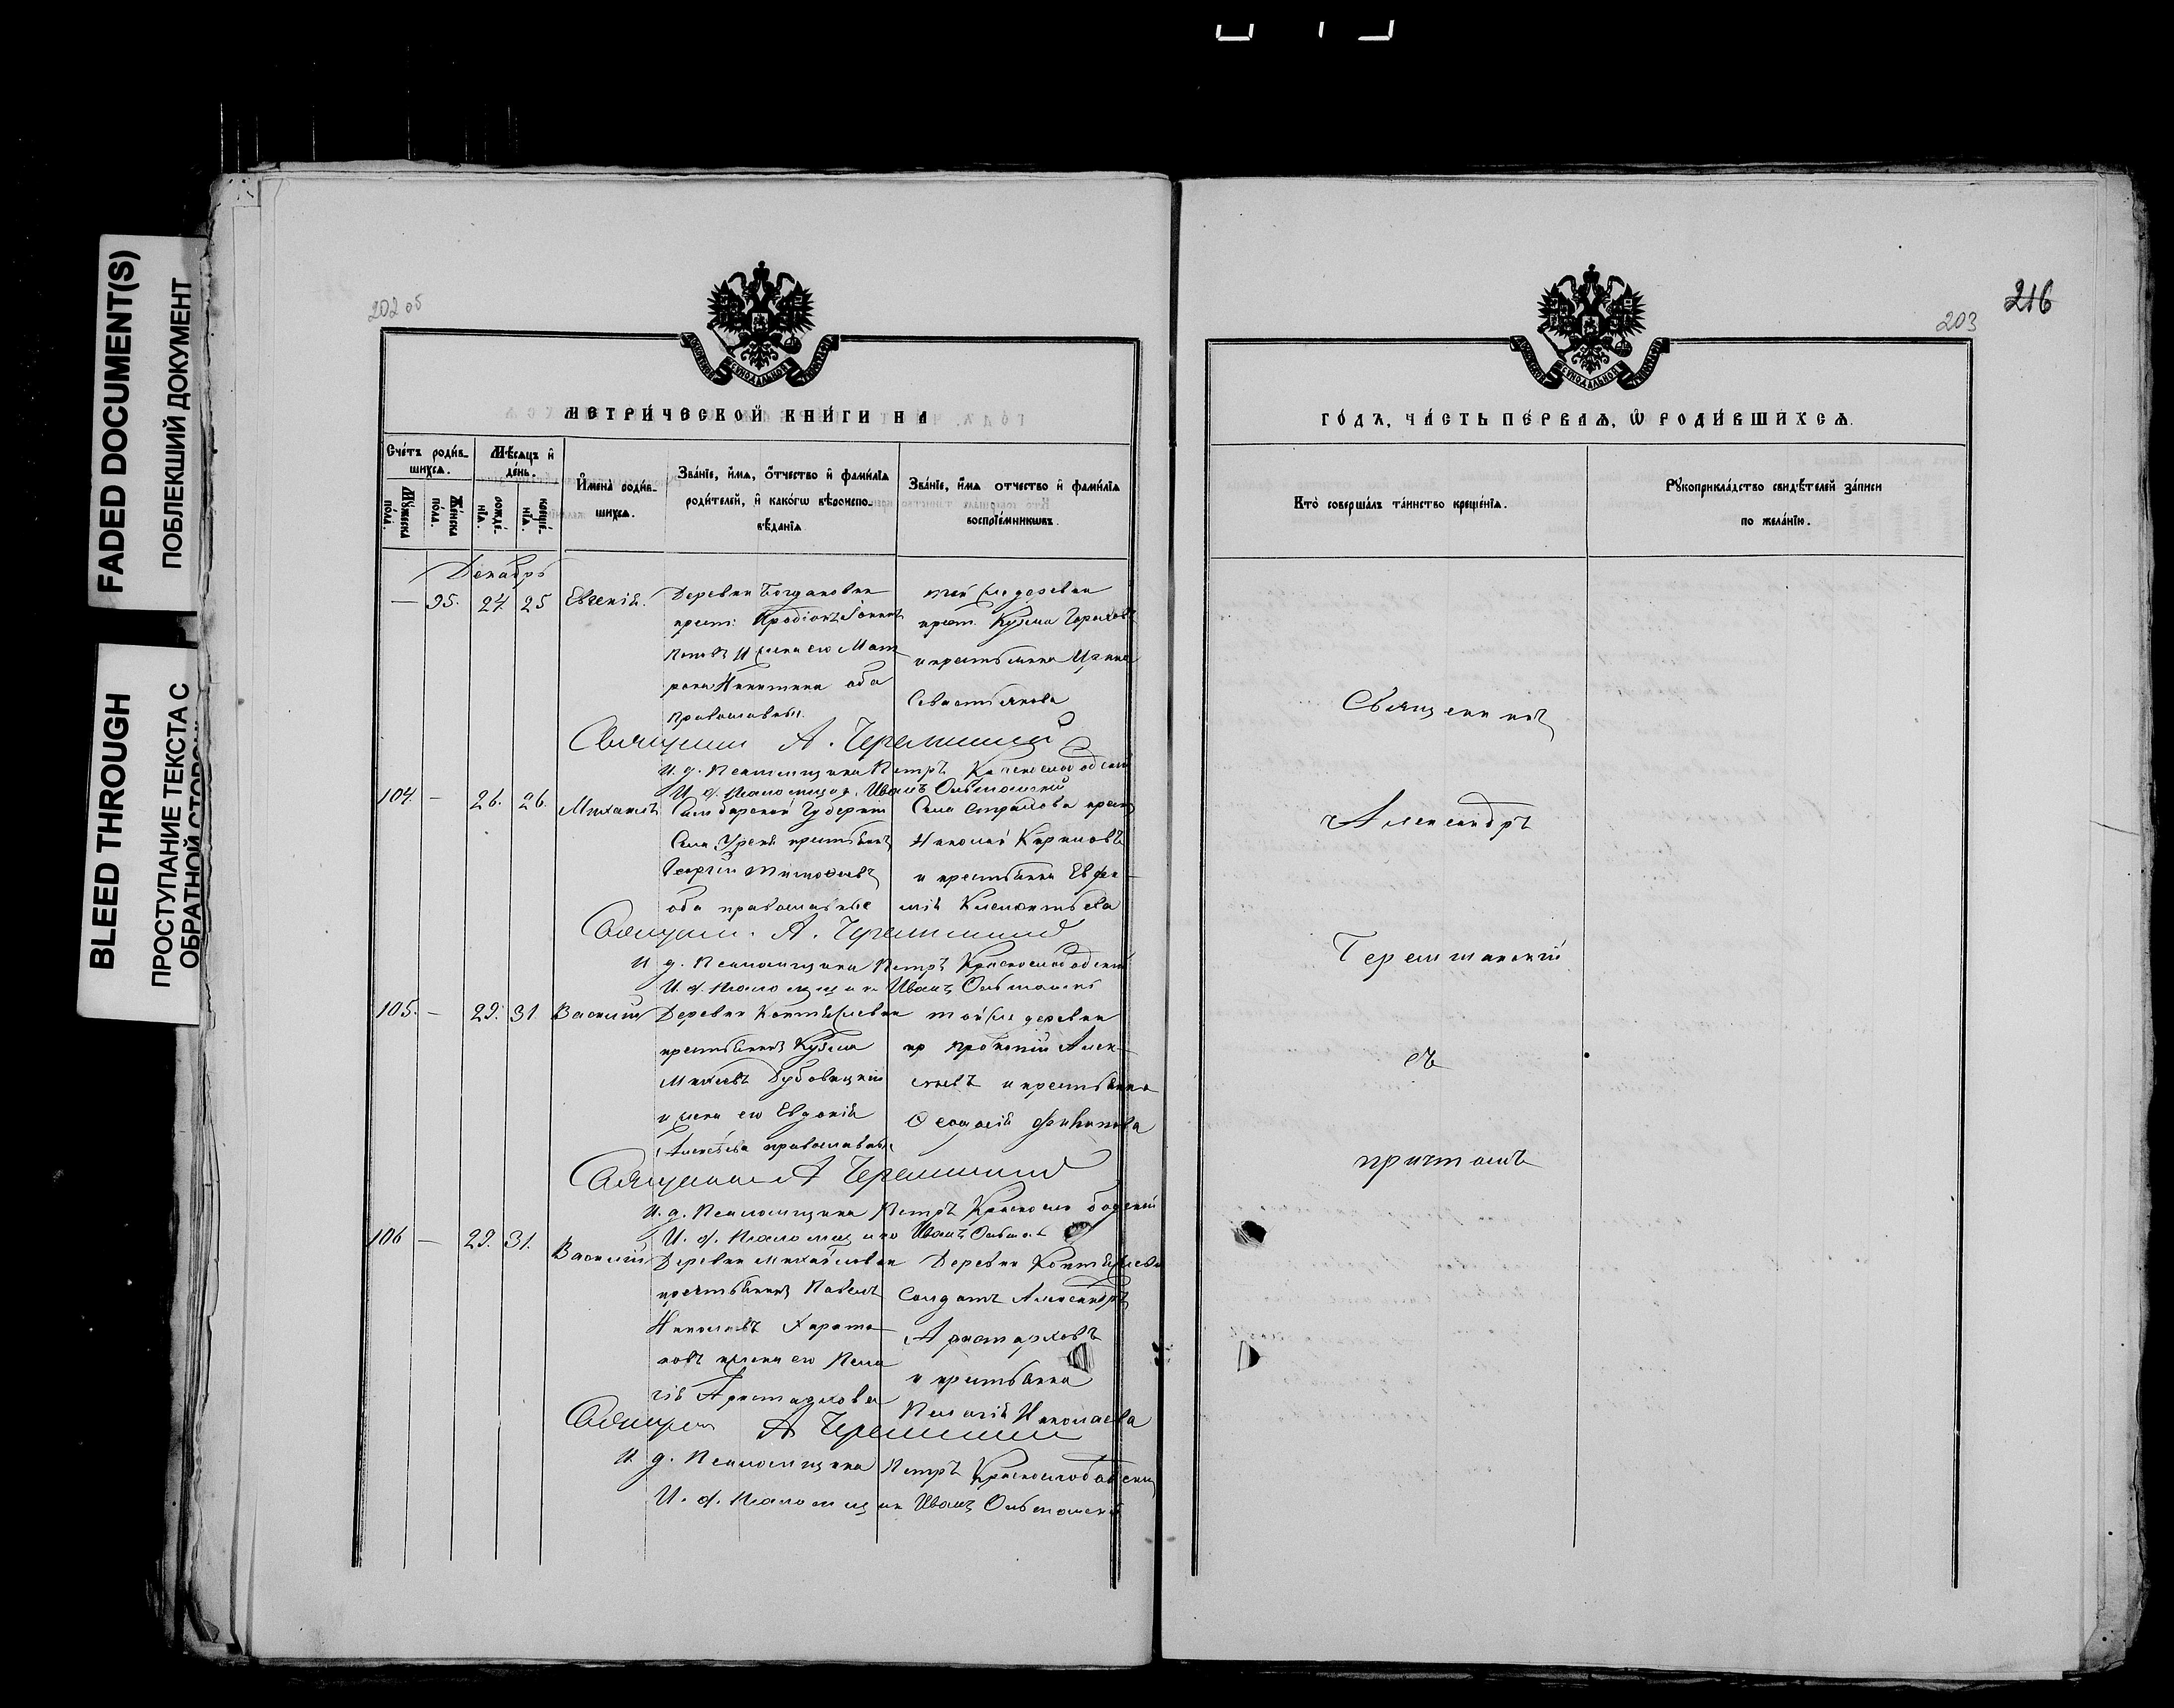 FADED DOCUMENT(S)
ПОБЛЕКШИЙ ДОКУМЕНТ
BLEED THROUGH
ПРОСТУПАНИЕ ТЕКСТА С
ОБРАТНОЙ СТОРОНЫ
202 об
МЕТРИ́ЧЕСКОЙ КНИ́ГИ НА
Сче́тъ роди́в-
шихсѧ.
Мѣ́сѧцъ и҆
де́нь.
Мꙋ́жеска
по́ла.
Же́нска
по́ла.
рожде́-
нїѧ.
креще́-
нїѧ.
И҆мена̀ роди́в-
шихсѧ.
Зва́нїе, и҆́мѧ, ѻ҆́тчество и҆ фами́лїѧ
роди́телей, и҆ како́гѡ вѣроиспо-
вѣ́данїѧ
Зва́нїе, и҆́мѧ ѻ҆́тчество и҆ фами́лїѧ
воспрїе́мникѡвъ.
Декабрь
— 95. 24. 25 Евгенія.
Деревни Богдановки
крест: Иродіонъ
и жена его Мат
рона Никитина оба
православные.
той же деревни
крест. Кузма
и крестьянка Ирина
Севастьянова
Священн А. Черемшанскій
И. д. Псаломщика Петръ Краснослободскій
И. д. Псаломщик. Иванъ
104. — 26. 26. Михаилъ
Симбирской Губерніи
Села Урень крестьянинъ
Георгій Тимофеевъ
оба православные
Села крест
Николай Кириловъ
и крестьянка Евфи-
мія Климентьева
Священн. А. Черемшанскій
И д. Псаломщика Петръ Краснослободскій
И. д. Псаломщика Иванъ
105. — 29. 31. Василій
Деревни
крестьянинъ Кузма
Михеевъ Дубовицкій
и жена его Евдокія
Алексѣева православные
той же деревни
кр Прокопій Алек-
сѣевъ и крестьянка
Филипова
Священник А Черемшанскій
И. д. Псаломщика Петръ Краснослободскій
И. д. Псаломщика Иванъ
106 — 29. 31. Василій
Деревни Михайловки
крестьянинъ Павелъ
Николаевъ
и жена его Пела
гія Аристархова
Деревни
Солдатъ Александръ
Аристарховъ
и крестьянка
Пелагія Николаева
Священн А Черемшанскій
И д. Псаломщика Петръ Краснослободскій
И. д. Псаломщик Иванъ
216
203
ГО́ДЪ, ЧА́СТЬ ПЕ́РВАѦ, Ѡ҆ РОДИ́ВШИХСѦ.
Кто̀ соверша́лъ та́инство креще́нїѧ.
Рꙋкоприкла́дство свидѣ́телей за́писи
по жела́нїю.
Священникъ
Александръ
Черемшанскій
съ
причтомъ